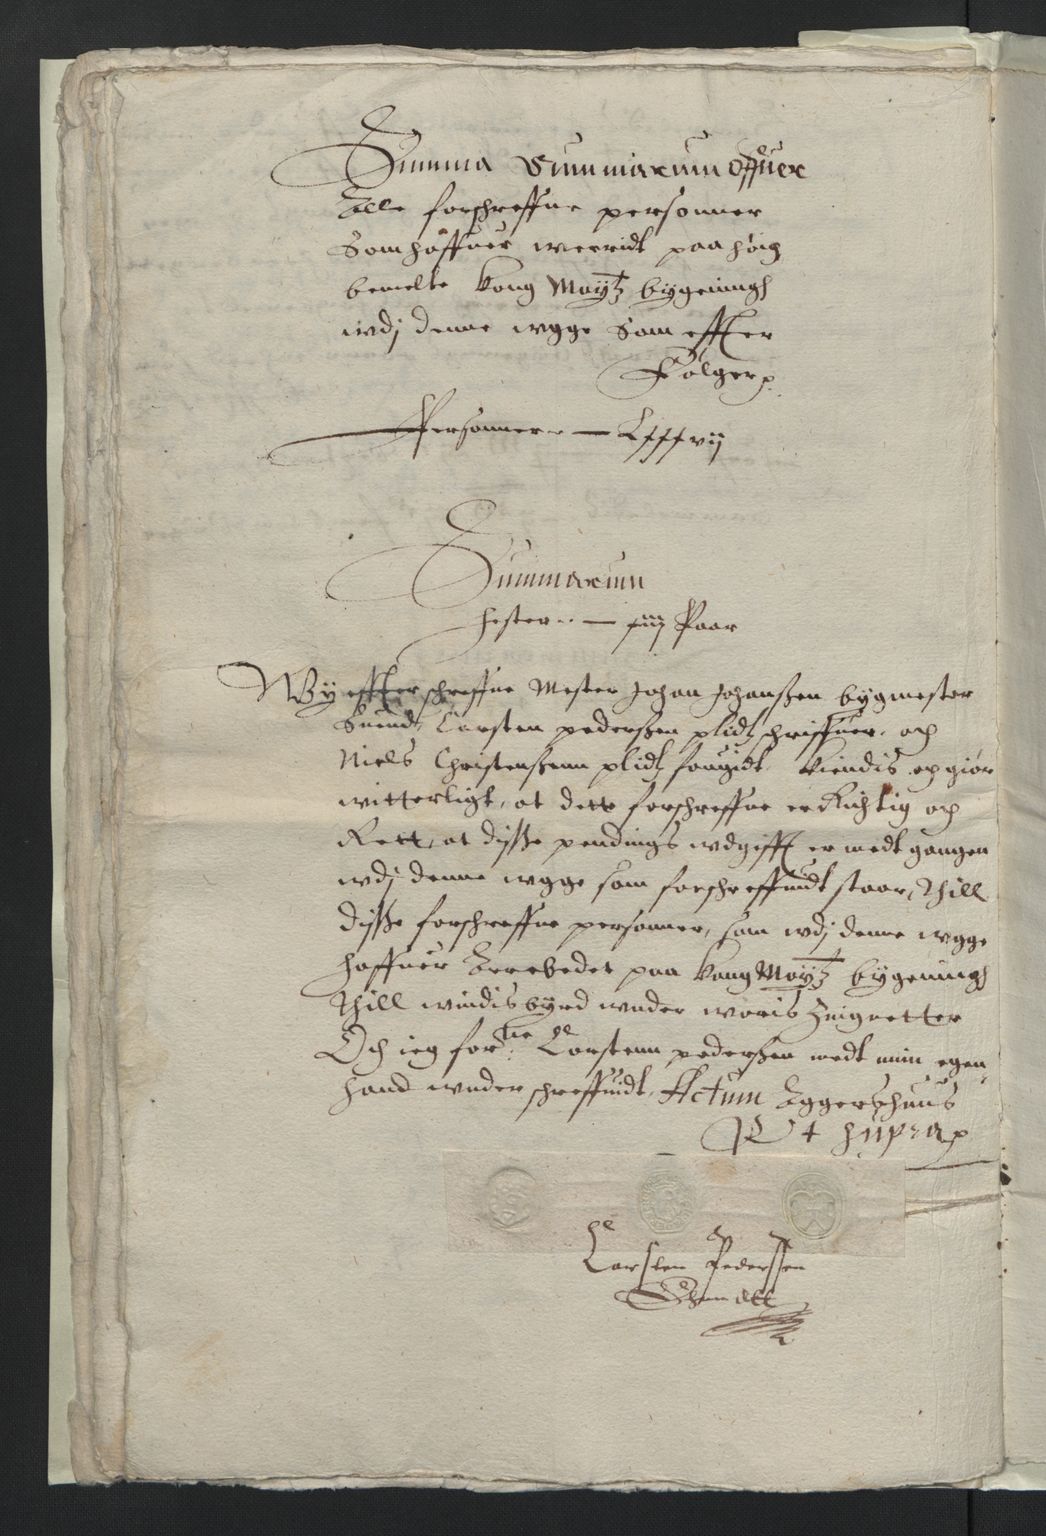 Summa Summarum offuer
Alle forschreffne personner
Som haffuer werridt paa høig
bemelte kong Maytz bygeningh
wdj denne wgge Som effter
Følger
Personner — Lxxxvij
Summarum
hester — xiij Paar
Wy effterschreffne Mester Johan Johanßen bygmester
Suend, Carsten pederßen plidtz schriffuer och
Niels Christenßenn plidtz fougidt, kiendis och giør
witterligt, at dette forschreffne er Richtig och
Rett, at dysße pendings wdgifft er medt gangen
wdj denne wgge som forschreffuidt staar, Thill
dysße forschreffne personner, som wdj denne wgge
haffuer Arrebedet paa kong Maytz bygeningh
Thill windisbyrd wnder woris Zeignetter
Och ieg for:ne Carstenn pederßen medt min egen
hand wnder schreffuidt, Actum Aggershuus
Carsten Pederssen